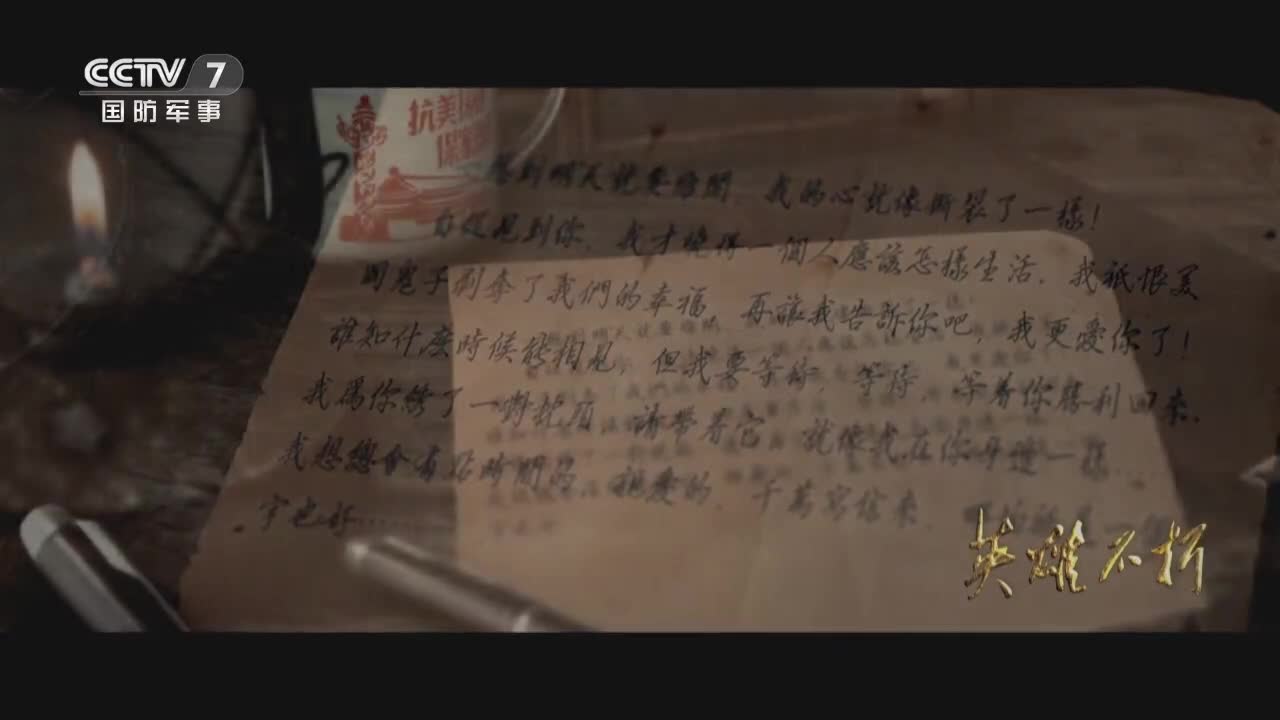 CCTV 7
国防军事
抗美
保家
到明天就要離開，我的心就像斷裂了一樣！
自從見到你，我才曉得一個人應該怎樣生活，我祇恨美
國鬼子剝奪了我們的幸福，再讓我告訴你吧，我更愛你了！
誰知什麼時候能相見，但我要等待，等待，等着你勝利回來。
我爲你繡了一對枕頭，請帶着它，就像我在你身邊一樣……
我想總會有好時間的，親愛的，千萬寫信來，
字也好……
英雄不朽